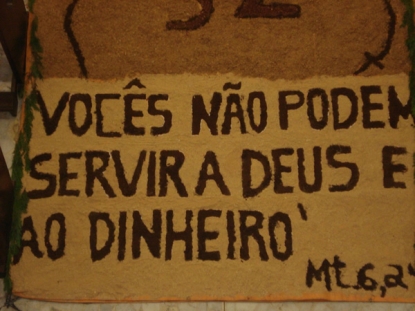 32
VOCÊS NÃO PODEM
SERVIR A DEUS E
AO DINHEIRO`
Mt. 6,24